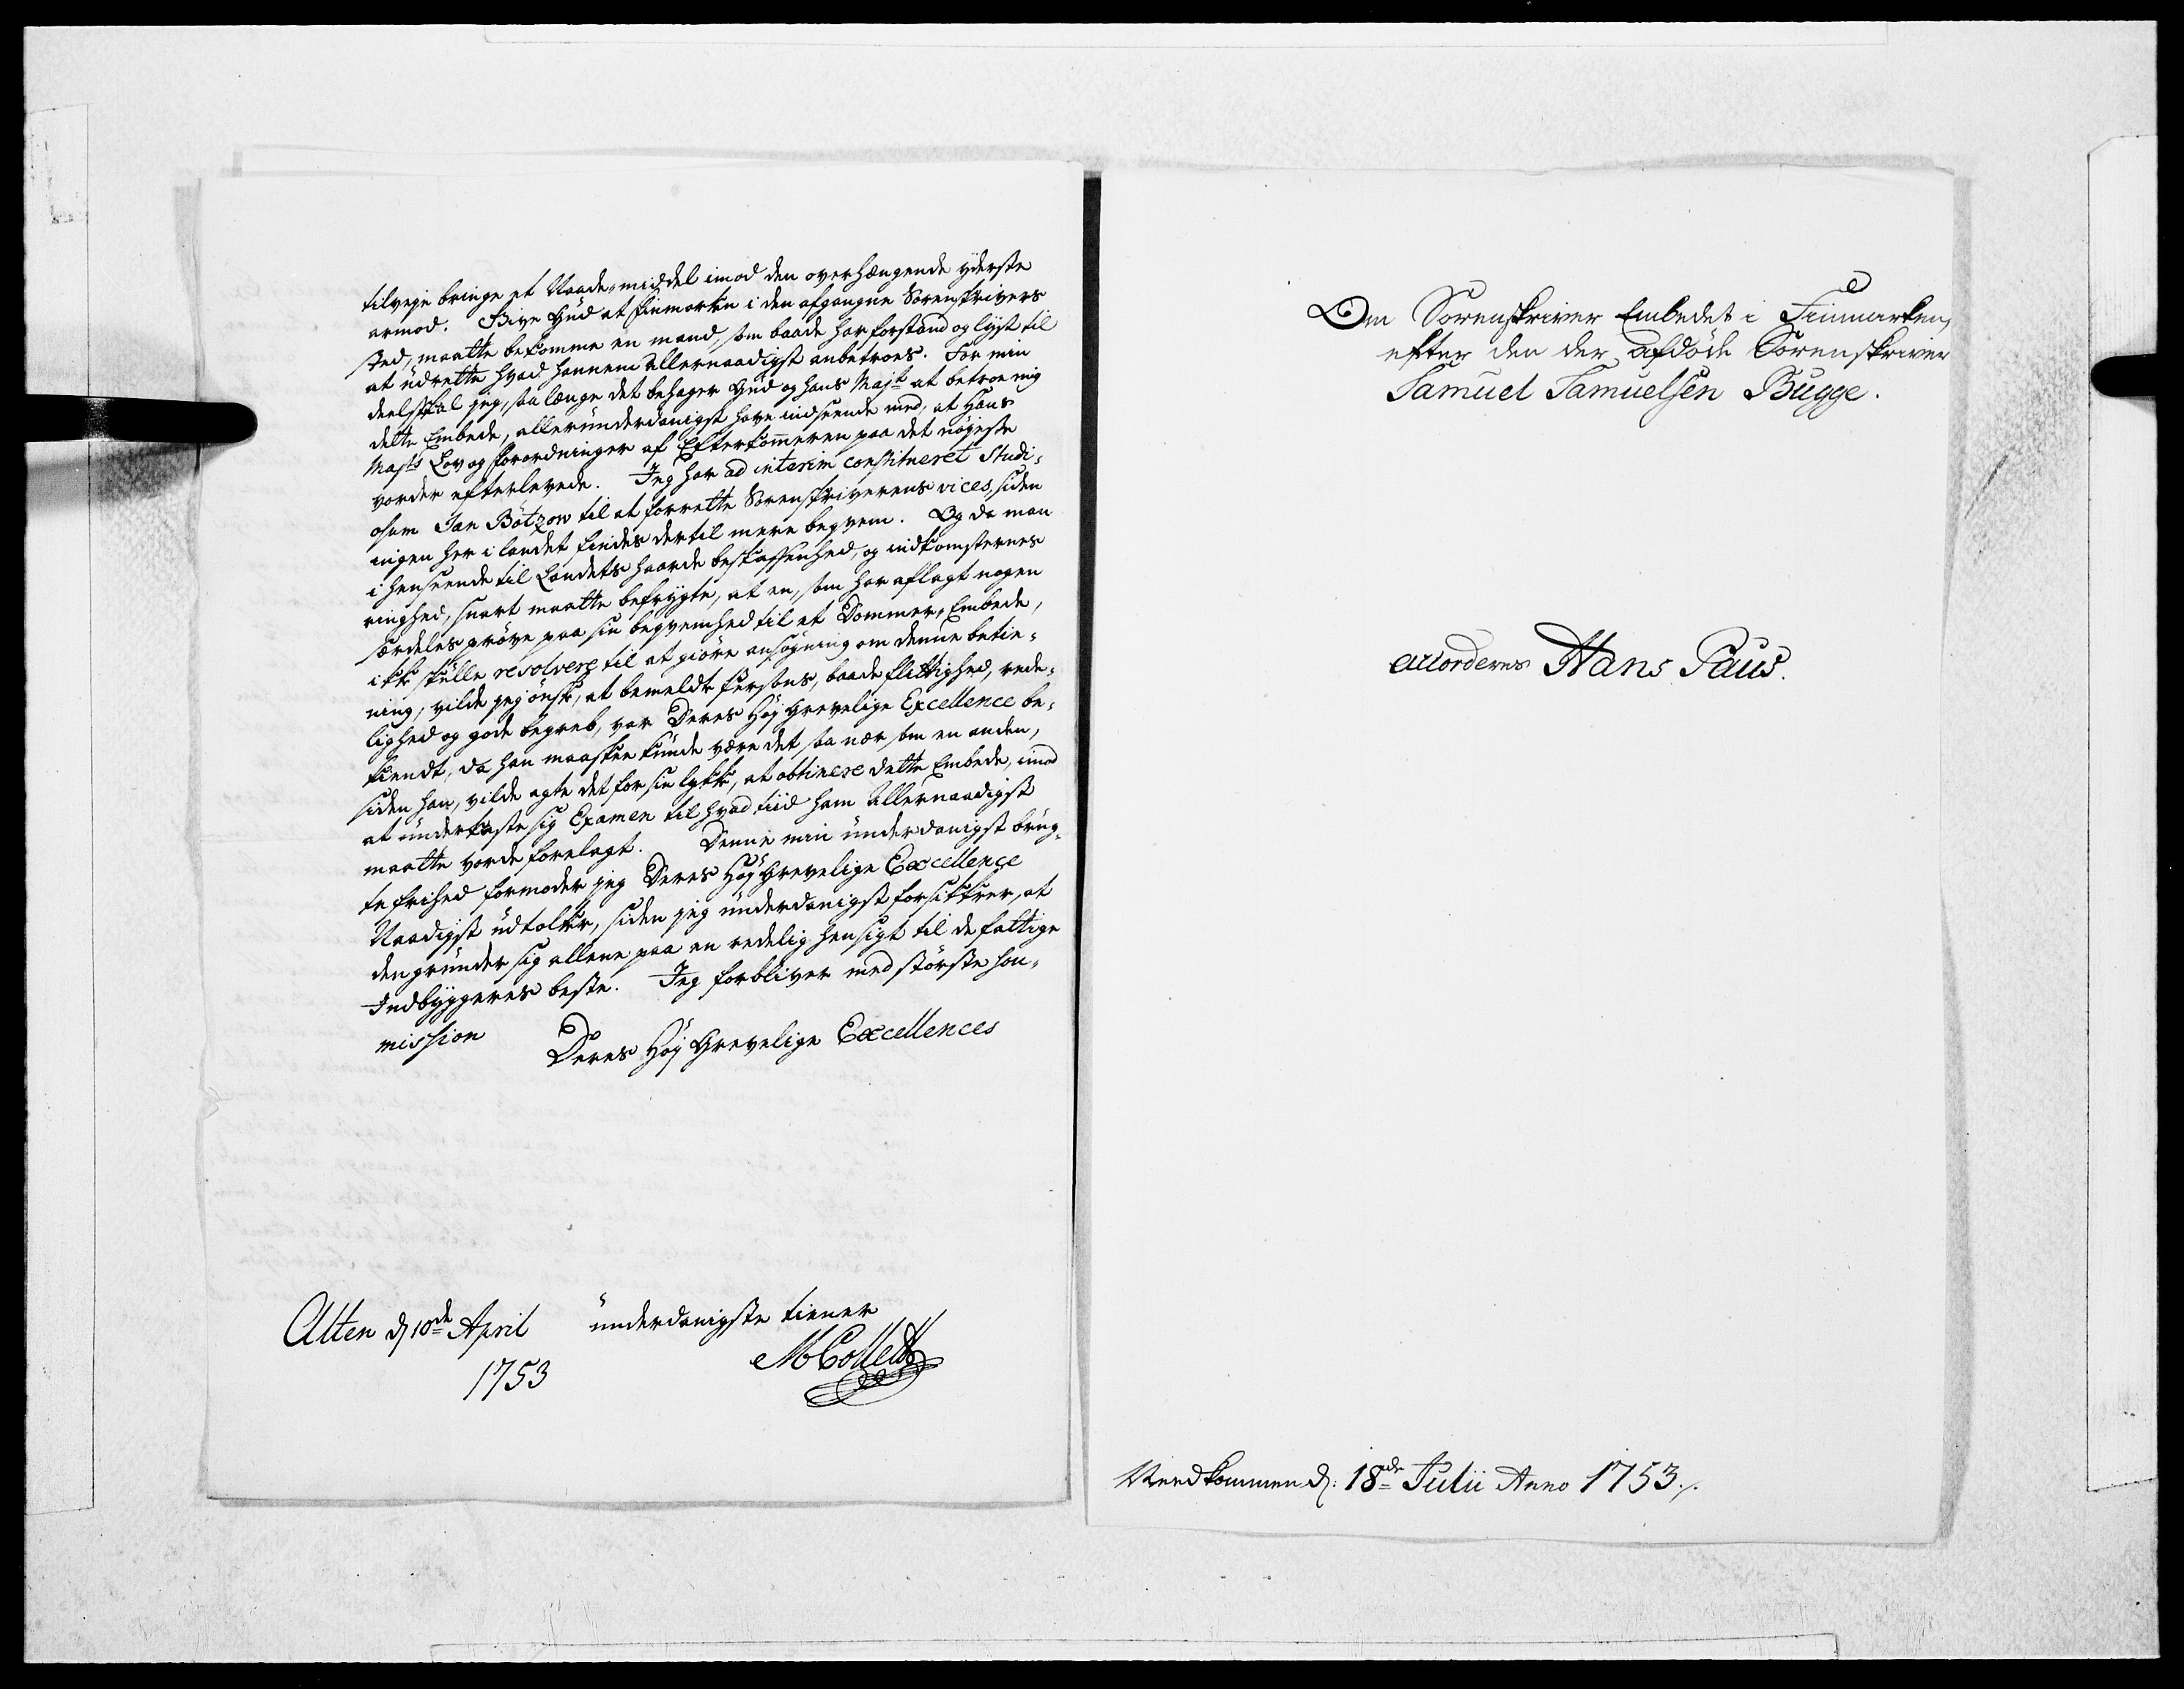 tilveje bringe et Naade-middel imod den overhængende yderste
armod. Give Gud at Finmarken i den afgangne Sorenskrivers
sted, maatte bekomme en mand, som baade har forstand og lyst til
at udrette hvad hannem Allernaadigst anbetroes. For min
deel skal jeg, saa længe det behager Gud og hans Majt at betroe mig
dette Embede, allerunderdanigst have indseende med, at Hans
Majts Lov og Forordninger af Efterkommeren paa det nøyeste
vorder efterlevede. Jeg har ad interim constitueret Studi-
osum Jan Bötzow til at forrette Sorenskriverens vices, siden
ingen her i landet findes dertil mere beqvem. Og da man
i henseende til Landets haarde beskaffenhed, og indkomsternes
ringhed, snart maatte befrygte, at en, som har aflagt nogen
særdeles prøve paa sin beqvemhed til et Dommer-Embede,
ikke skulle resolvere til at giöre ansøgning om denne betie-
ning, vilde jeg ønske, at bemeldte Persons, baade flittighed, rede-
lighed og gode begreb, var Deres Høy Grevelige Excellence be-
kiendt, da han maaskee kunde være det saa nær som en anden,
siden han, vilde agte det for sin lykke, at obtinere dette Embede, imod
at underkaste sig Examen til hvad tiid ham Allernaadigst
maatte vorde forelagt. Denne min underdanigst brug-
te frihed formoder jeg Deres Høy Grevelige Excellence
Naadigst udtolker, siden jeg underdanigst forsikkrer, at
den grunder sig allene paa en redelig hensigt til de fattige
Indbyggeres beste. Jeg forbliver med største sou-
mission
Deres Høy Grevelige Excellences
underdanigste tiener
Alten d 10de April
1753
M Collett
Om Sorenskriver Embedet i Finmarken,
efter den der afdöde Sorenskriver
Samuel Samuelsen Bugge.
accorderes Hans Paus.
Needkommen d: 18de Julii Anno 1753.